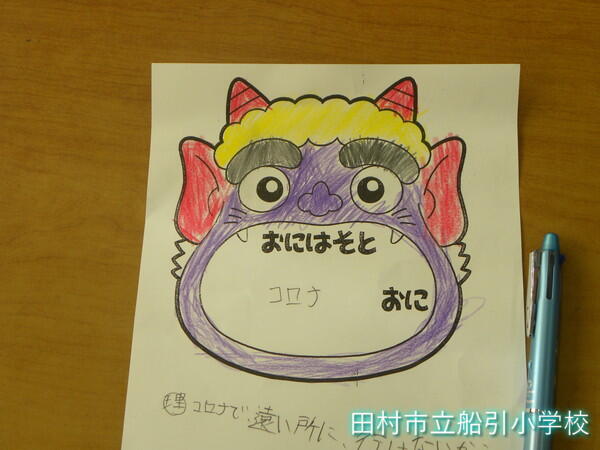 おにはそと
コロナ
おに
理 コロナで遠い所に、行けないから
田村市立船引小学校